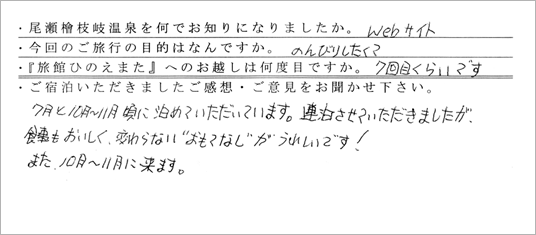 ・尾瀬檜枝岐温泉を何でお知りになりましたか。 Webサイト
・今回のご旅行の目的はなんですか。 のんびりしたくて
・『旅館ひのえまた』へのお越しは何度目ですか。 7回目くらいです
・ご宿泊いただきましたご感想・ご意見をお聞かせ下さい。
7月と10月〜11月頃に泊めていただいています。連泊させていただきましたが、
食事もおいしく、変わらない“おもてなし”がうれしいです！
また、10月〜11月に来ます。